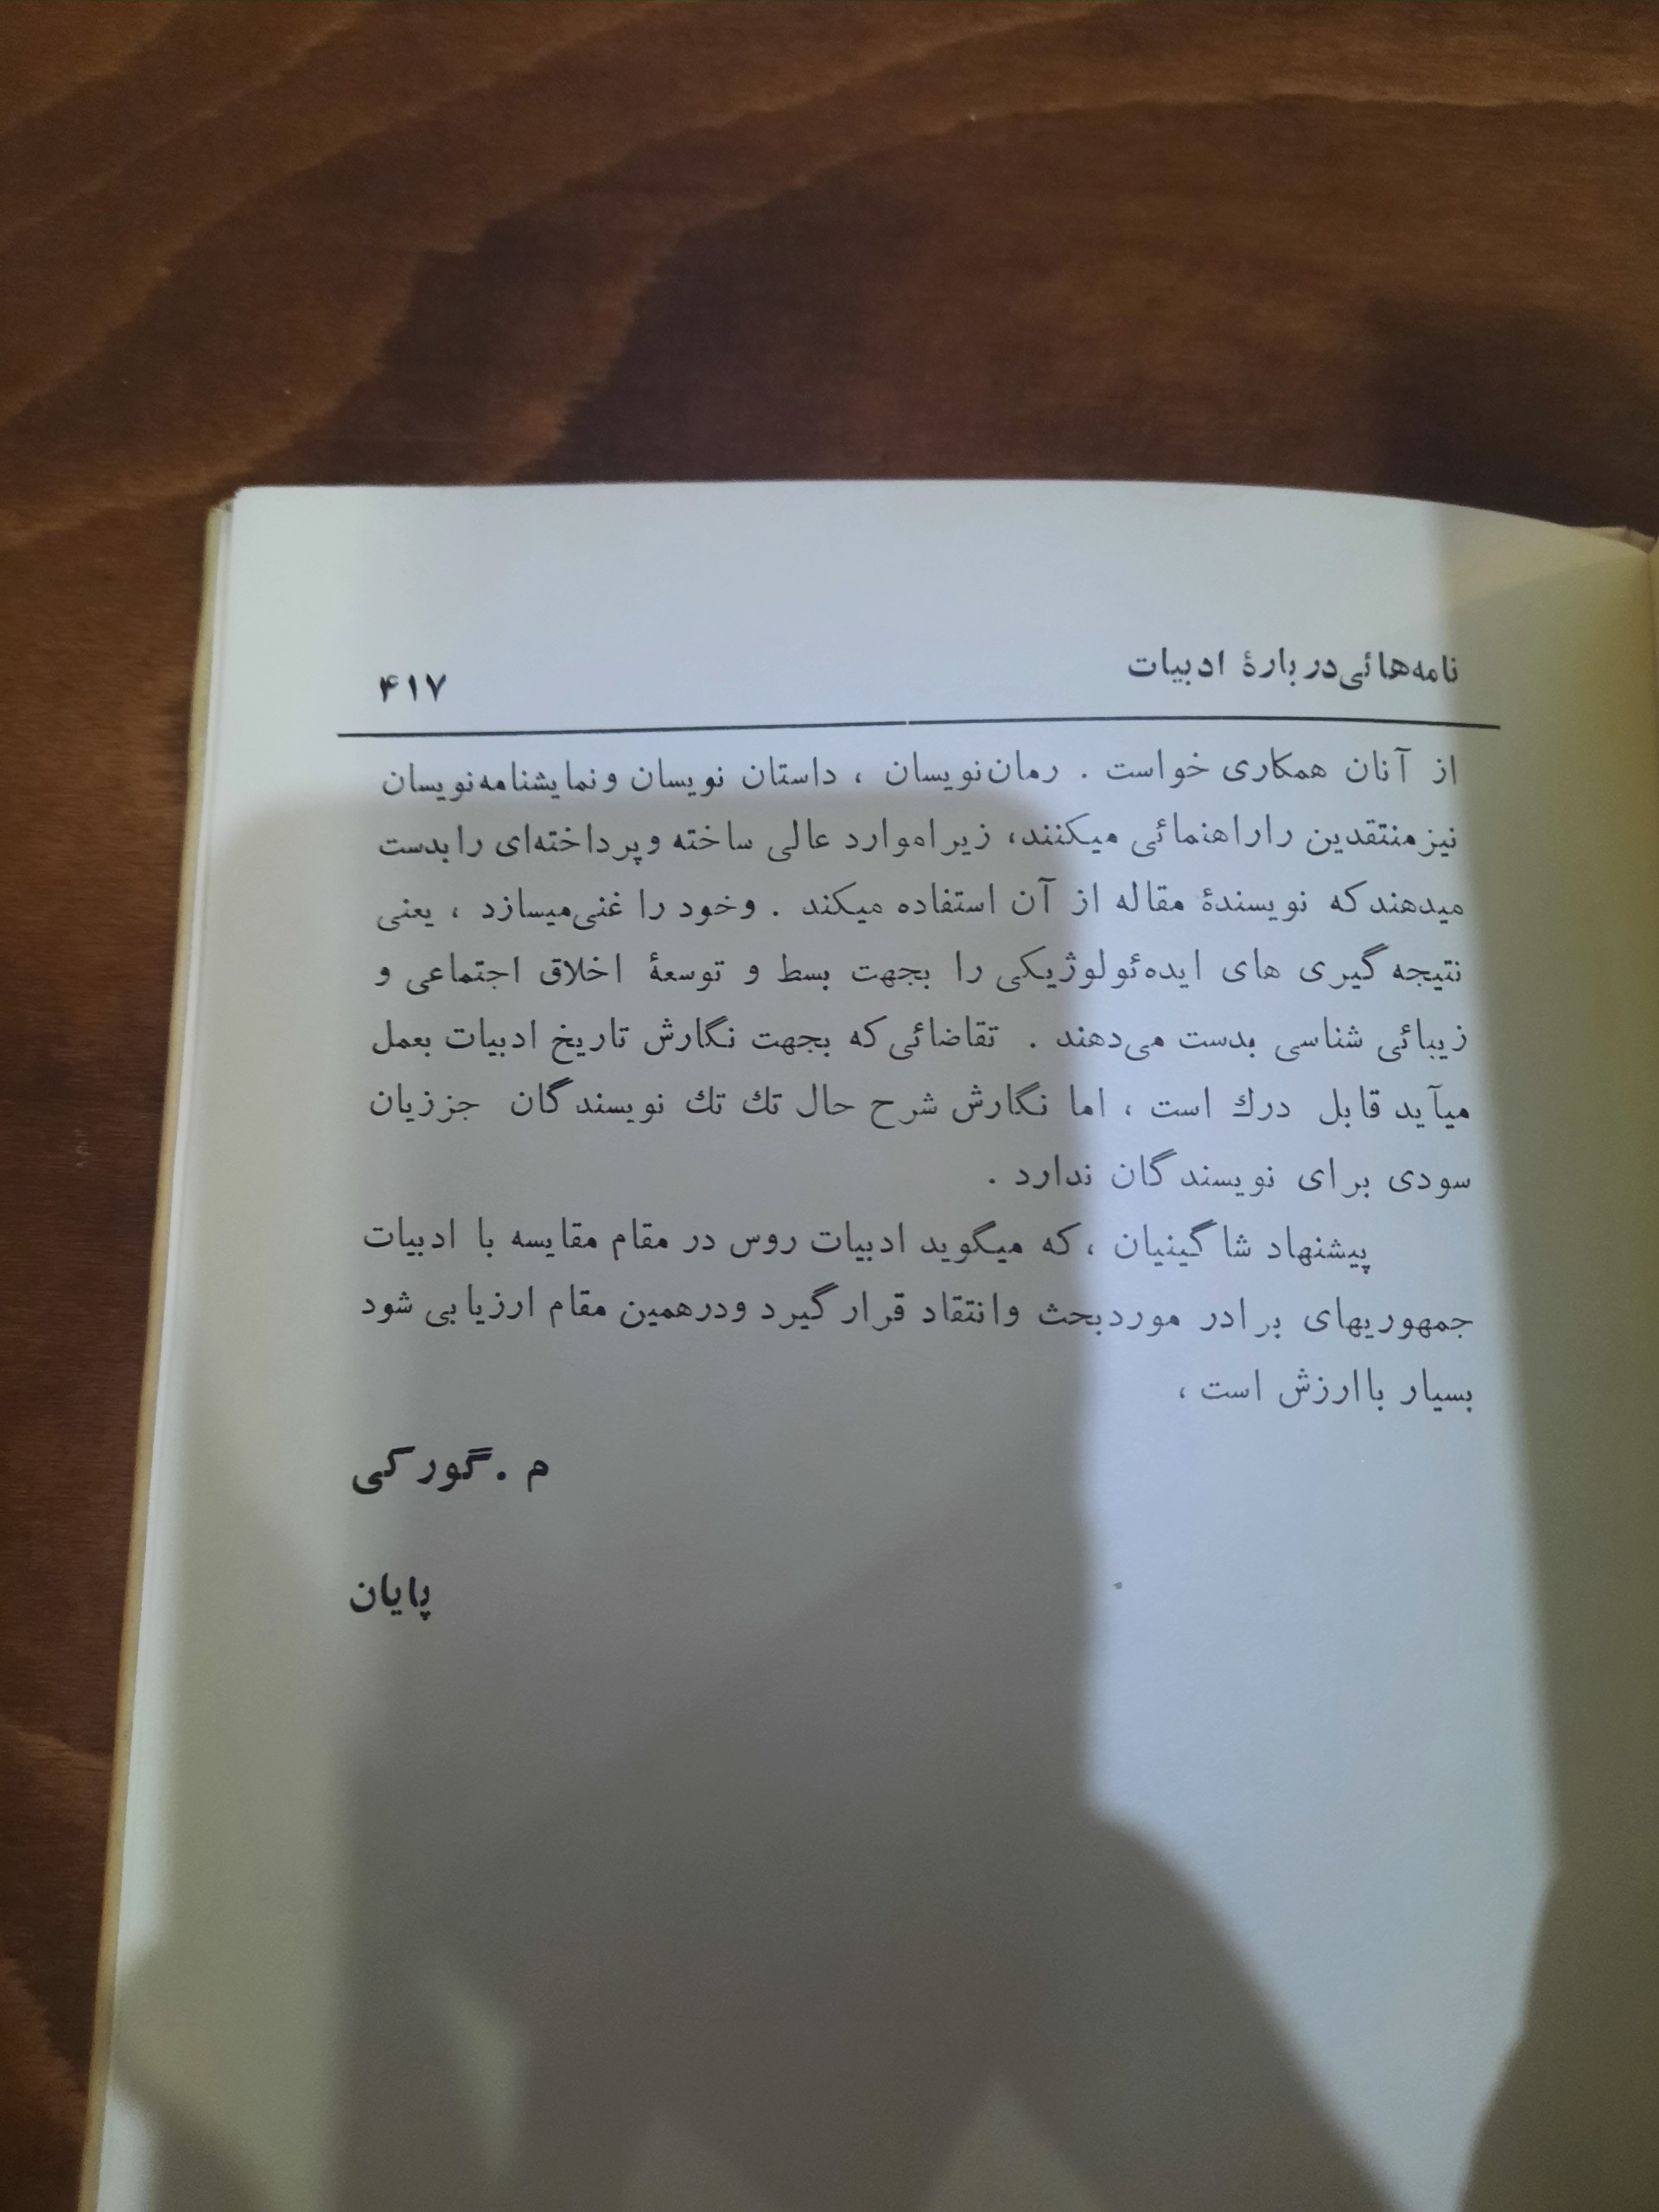 نامه‌هائی‌در بارهٔ ادبیات ۴۱۷
از آنان همکاری خواست . رمان‌نویسان ، داستان نویسان ونمایشنامه‌نویسان
نیزمنتقدین راراهنمائی میکنند، زیراموارد عالی ساخته وپرداخته‌ای رابدست
میدهندکه نویسندهٔ مقاله از آن استفاده میکند . وخود را غنی‌میسازد ، یعنی
نتیجه گیری های ایده‌ئولوژیکی را بجهت بسط و توسعهٔ اخلاق اجتماعی و
زیبائی شناسی بدست می‌دهند . تقاضائی‌که بجهت نگارش تاریخ ادبیات بعمل
میآید قابل درك است ، اما نگارش شرح حال تك تك نویسندگان جززیان
سودی برای نویسندگان ندارد .
پیشنهاد شاگینیان ، که میگوید ادبیات روس در مقام مقایسه با ادبیات
جمهوریهای برادر موردبحث وانتقاد قرارگیرد ودرهمین مقام ارزیابی شود
بسیار باارزش است ،
م .گورکی
پایان